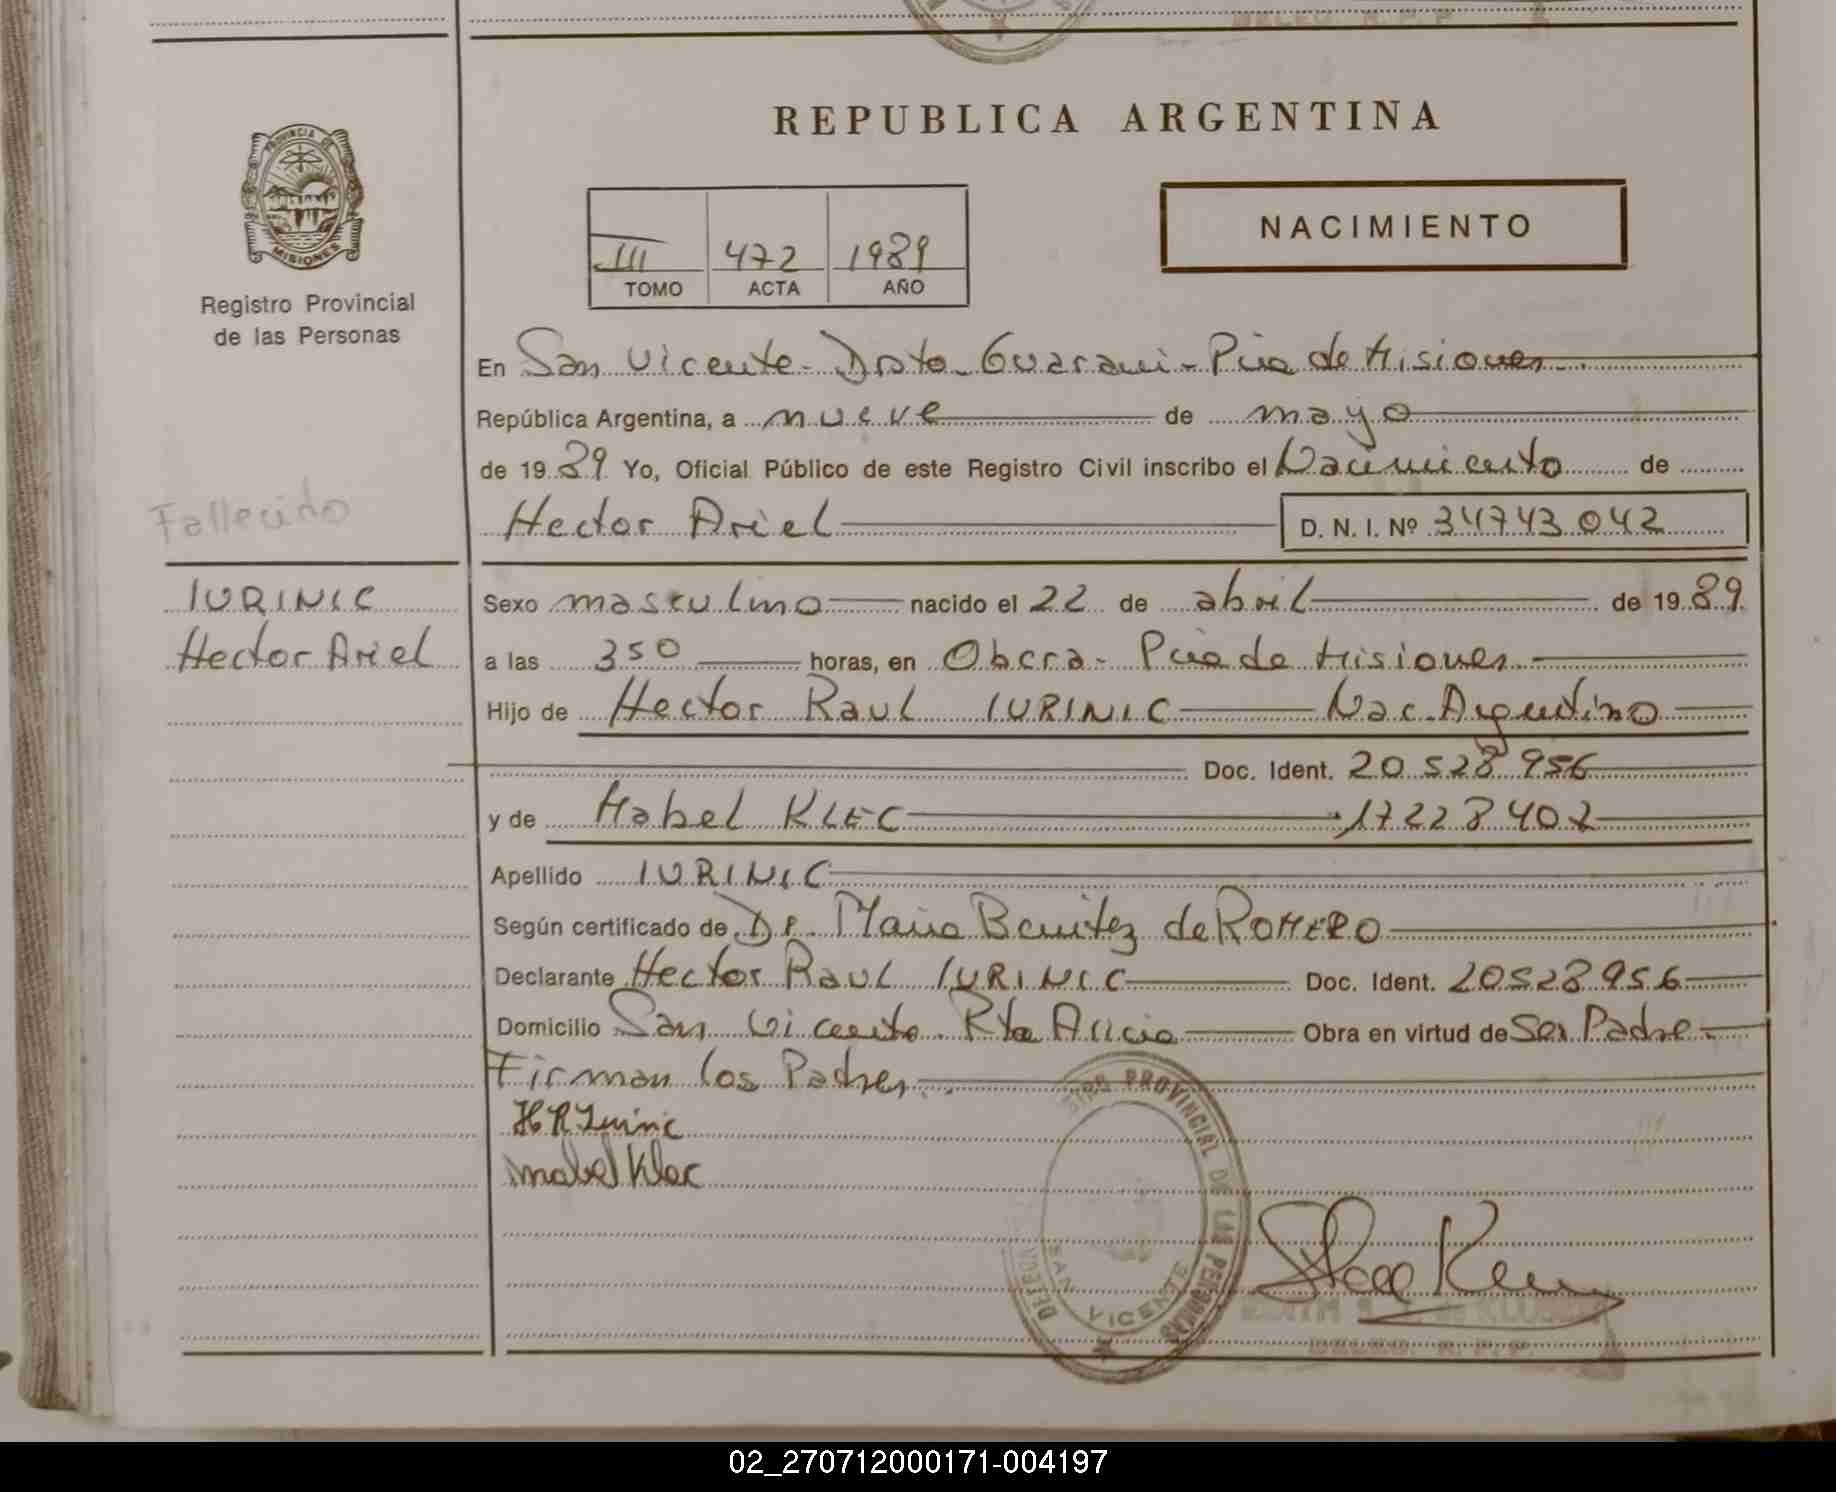 REPUBLICA ARGENTINA
PROVINCIA DE MISIONES
Registro Provincial
de las Personas
III 472 1989
TOMO ACTA AÑO
NACIMIENTO
En San Vicente - Dpto - Guarani - Pcia de Misiones
República Argentina, a nueve de mayo
de 1989 Yo, Oficial Público de este Registro Civil inscribo el Nacimiento de
Fallecido
Hector Ariel D. N. I. Nº 34743.042
IURINIC
Hector Ariel
Sexo masculino nacido el 22 de abril de 1989.
a las 350 horas, en Obera - Pcia de Misiones
Hijo de Hector Raul IURINIC Nac. Argentino
Doc. Ident. 20.528.956
y de Mabel KLEC 17228402
Apellido IURINIC
Según certificado de Dr. Maria Benitez de ROMERO
Declarante Hector Raul IURINIC Doc. Ident. 20528956
Domicilio San Vicente. Obra en virtud de Ser Padre
Firman los Padres
H R Iurinic
Mabel Klec
REGISTRO PROVINCIAL DE LAS PERSONAS
SAN VICENTE
DELEG. R. P. P.
02_270712000171-004197